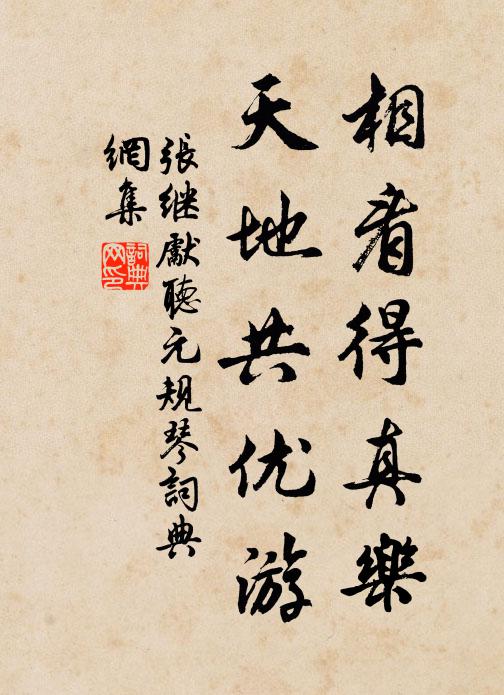 相看得真樂
天地共优游
張继獻聽元規琴詞典
網集
詞典
网印